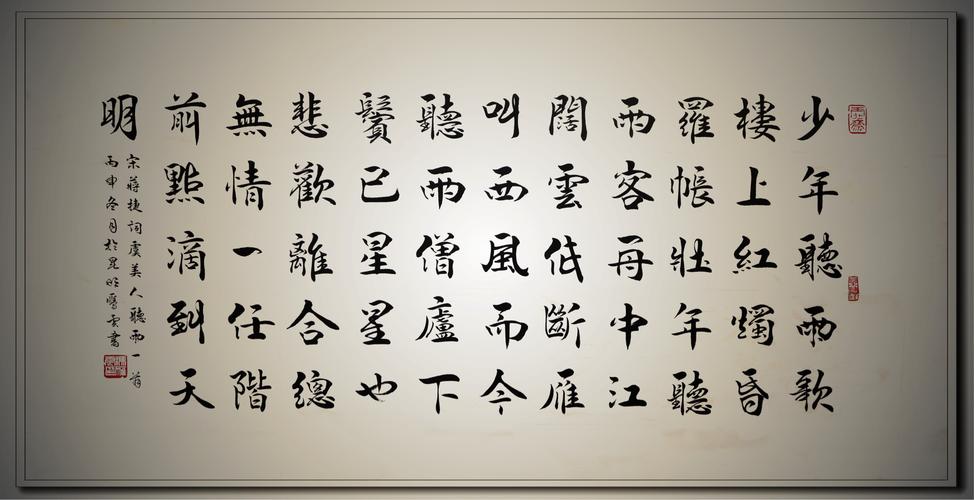 少年聽雨歌
樓上紅燭昏
羅帳壯年聽
雨客舟中江
闊雲低斷雁
叫西風而今
聽雨僧廬下
鬢已星星也
悲歡離合總
無情一任階
前點滴到天
明
宋蔣捷詞虞美人聽雨一首
丙申冬月於昆明